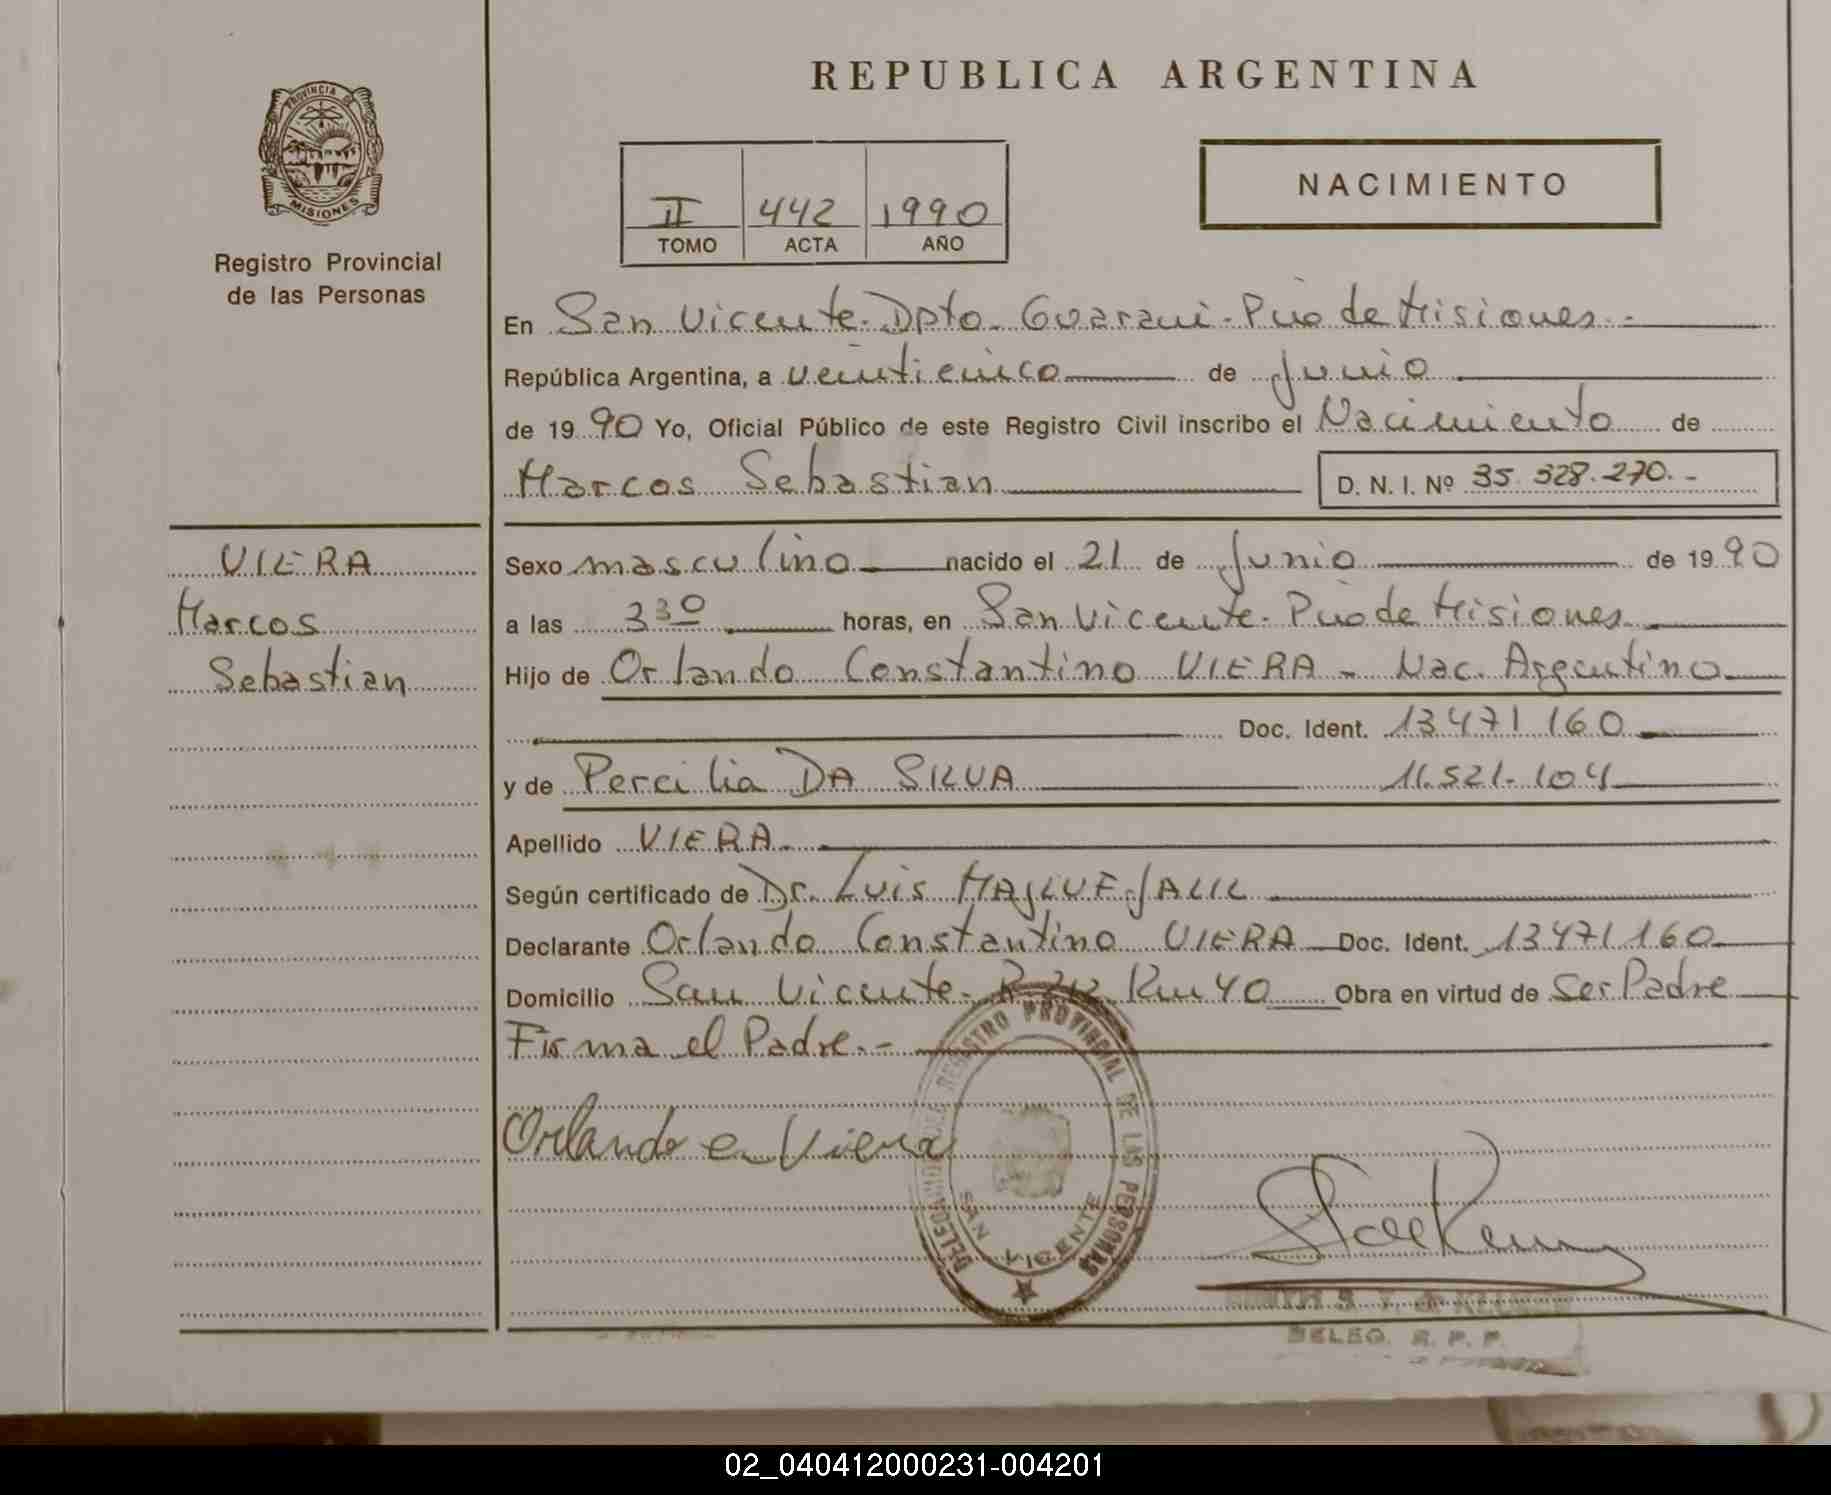 REPUBLICA ARGENTINA
PROVINCIA DE
MISIONES
Registro Provincial
de las Personas
II 442 1990
TOMO ACTA AÑO
NACIMIENTO
En San Vicente. Dpto. Guarani. Pcia de Misiones.-
República Argentina, a veinticinco de Junio
de 1990 Yo, Oficial Público de este Registro Civil inscribo el Nacimiento de
Marcos Sebastian
D. N. I. Nº 35.328.270.-
VIERA
Marcos
Sebastian
Sexo masculino nacido el 21 de Junio de 1990
a las 3 30 horas, en San Vicente. Pcia de Misiones.
Hijo de Orlando Constantino VIERA - Nac. Argentino
Doc. Ident. 13.471.160
y de Percilia DA SILVA 11.521.104
Apellido VIERA.
Según certificado de Dr. Luis JALIL
Declarante Orlando Constantino VIERA Doc. Ident. 13.471.160
Domicilio San Vicente. Km 40 Obra en virtud de Ser Padre
Firma el Padre.-
Orlando C. Viera
REGISTRO PROVINCIAL DE LAS PERSONAS
SAN VICENTE
DELEG. R. P. P.
02_040412000231-004201